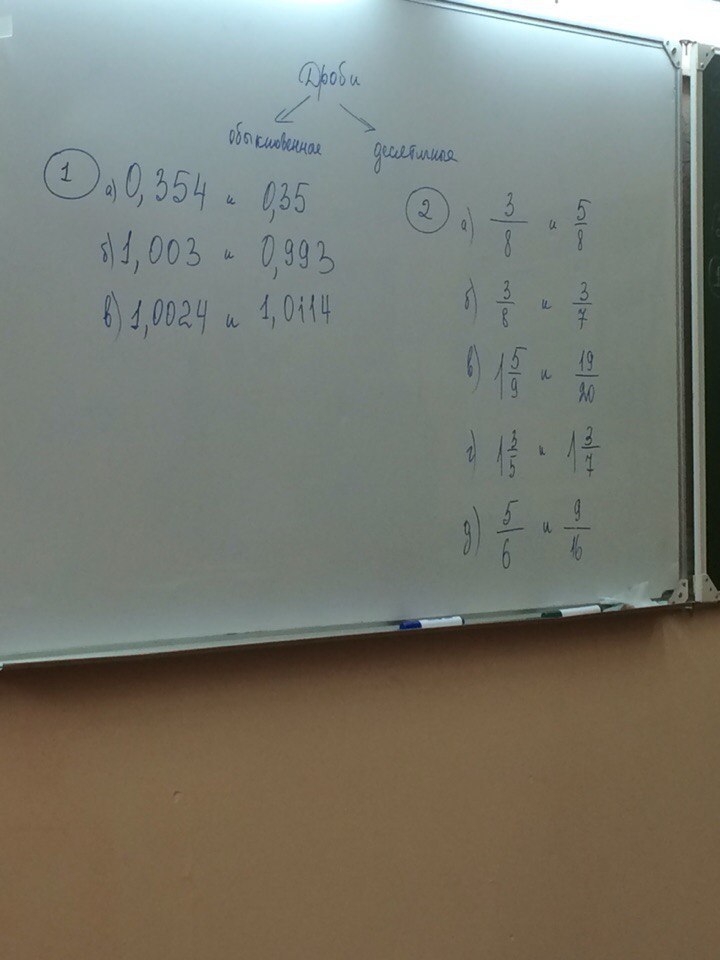 Дроби
обыкновенная десятичная
1 а) 0,354 и 0,35
б) 1,003 и 0,993
в) 1,0024 и 1,0114
2 а) 3/8 и 5/8
б) 3/8 и 3/7
в) 1 5/9 и 19/20
г) 1 3/5 и 1 3/7
д) 5/6 и 9/16